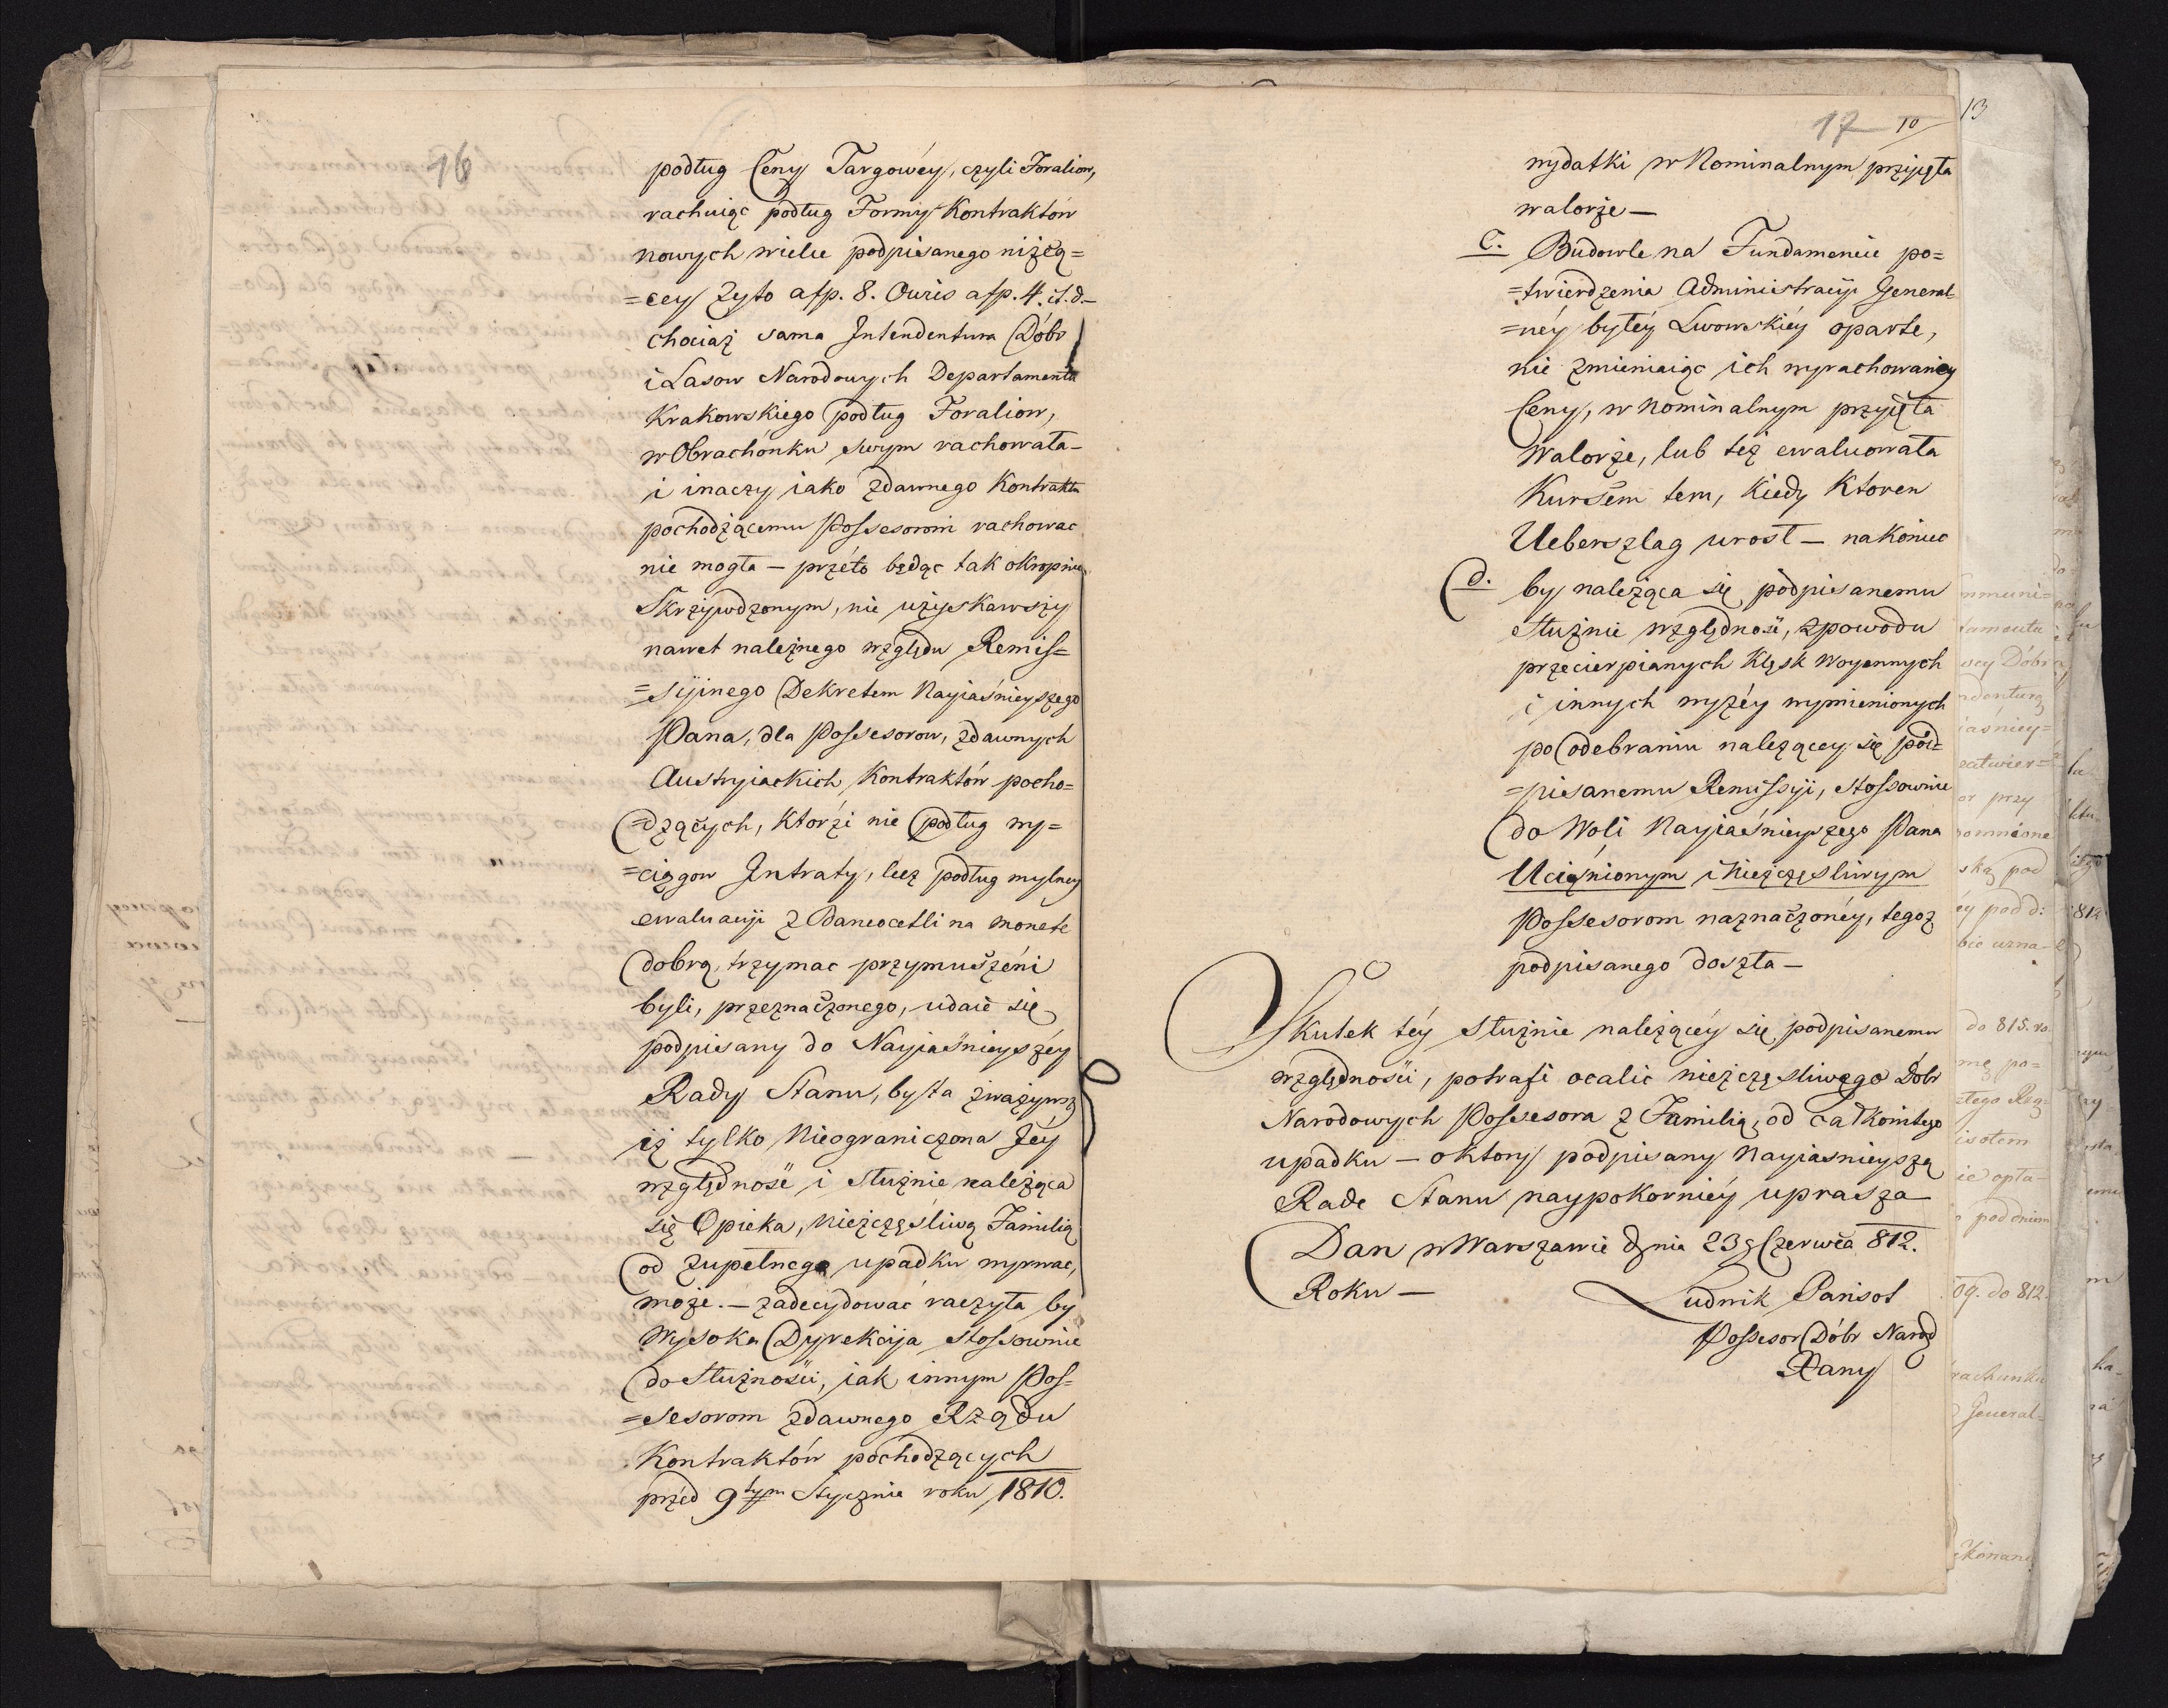 16
podług Ceny Targowéy, czyli Foraliow,
rachuiąc podług Formy Kontraktów
nowych wielce podpisanego niżeą=
=cey Zyto afp. 8. Owies afp. 4. it.d.—
chociaż sama Intendentura Dóbr
i Lasow Narodowych Departamentu
Krakowskiego podług Foralion,
w Obrachónku swym rachowała—
i inaczy iako zdawnego Kontraktu
pochodzącemu Possesorowi rachowac
nie mogła — przéto będąc tak okropnie
Skrzywdzonym, nie użyskawszy
nawet należnego względu Remis=
=syinego Dekretem Nayiaśnieyszego
Pana, dla Possesorow, zdawnych
Austryiackich Kontraktów pocho=
=dzących, Ktorzi nie podług wy=
=ciągow Intraty, lecz podług mylney
ewaluacyi z Bancocetli na monete
dobrą, trzymac przymuszéni
byli, przeznaczonego, udaie się
podpisany do Nayiaśnieyszéy
Rady Stanu, by ta zważywszy
iż tylko Nieograniczona Jéy
względność i słuznie należąca
się Opieka, Nieżczęśliwą Familią
od zupełnego upadku wyrwac,
może. — Zadecydować raczyła by
Wysoka Dyrekcija stossownie
do Słuzności, iak innym Pos=
=sesorom zdawnego Rządu
Kontraktów pochodzących
przed 9tym Stycznia roku 1810.
17 10
wydatki w Nominalnym przyięta
walorże —
C. Budowle na Fundamencie po=
=twierdzenia Administracyi General=
=néy byłéy Lwowskiéy oparte,
nie zmieniaiąc ich wyrachowaney
Ceny, w Nominalnym przyięta
Walorże, lub też ewaluowała
Kursem tem, Kiedy Ktoren
Ueberszlag urosł — nakoniec
d. by należąca się podpisanemu
Słuznie względność, zpowodu
przecierpianych Klęsk Woyennych
i innych wyżéy wymienionych
po odebraniu należącey się pod=
=pisanemu Remissyi, stossownie
do Woli Nayiaśnieyszego Pana
Uciąźnionym i Nieżczęsliwym
Possesorom naznaczonéy, tegoż
podpisanego doszła —
Skutek téy słuznie należącéy się podpisanemu
względności, potrafi ocalic nieżczęsliwego Dóbr
Narodowych Possesora z Familią, od całkowitego
upadku — októry podpisany Nayiasnieyszą
Rade Stanu naypokorniéy uprasza
Dan w Warszawie dnia 23g Czerwca 812.
Roku —
Ludwik Parisot
Possesor Dóbr Narod
Rany
13